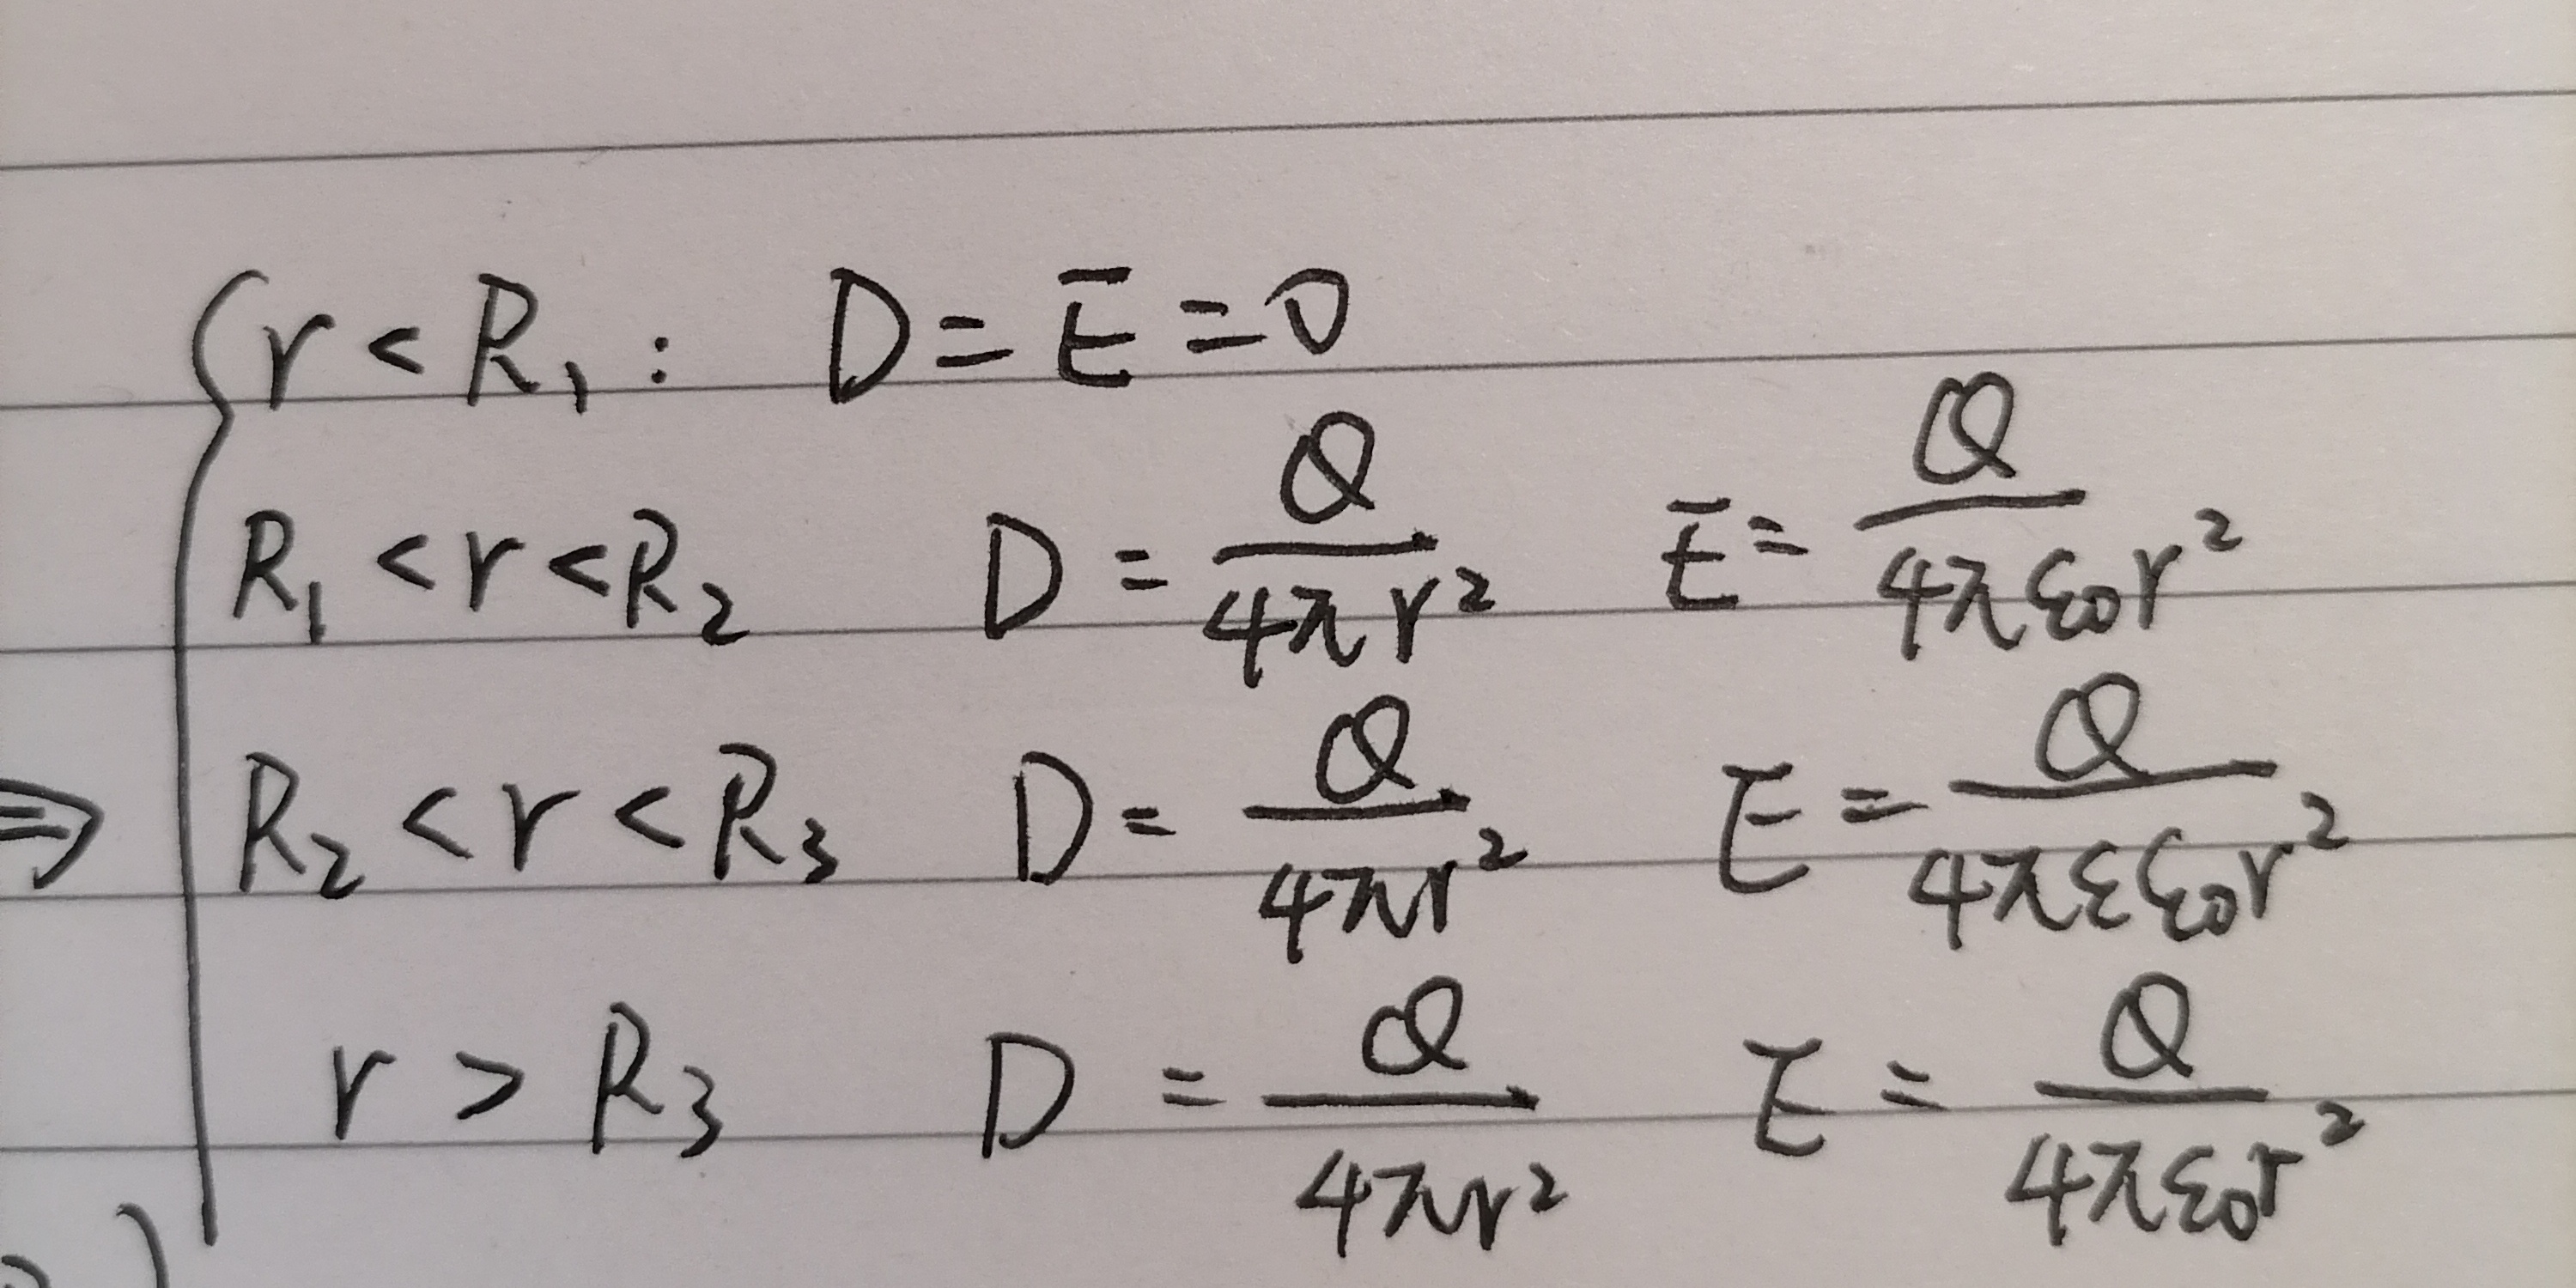 r < R₁ : D = E = 0
R₁ < r < R₂ D = Q/(4πr²) E = Q/(4πε₀r²)
⇒ R₂ < r < R₃ D = Q/(4πr²) E = Q/(4πεε₀r²)
r > R₃ D = Q/(4πr²) E = Q/(4πε₀r²)